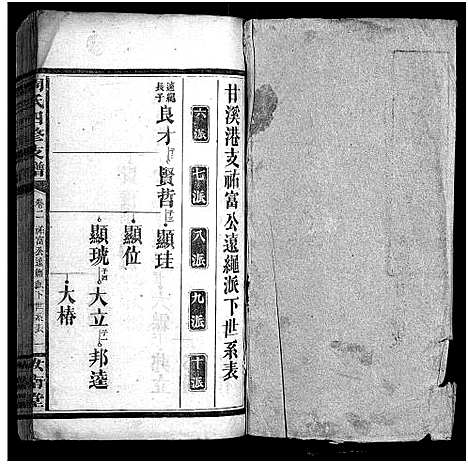 甘溪港支祐富公遠繩派下世系表
六派
七派
八派
九派
十派
遠繩長子
良才
賢哲
子三
顯珪
顯位
顯琥
子二
大立
子一
邦達
大椿
氏四修支譜
卷二
祐富公遠繩派下世系表
堂